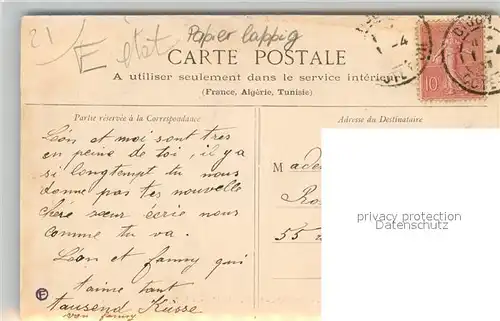 21
E état
Papier lappig
CARTE POSTALE
A utiliser seulement dans le service intérieur
(France, Algérie, Tunisie)
Partie réservée à la Correspondance
Adresse du Destinataire
Léon et moi sont très
en peine de toi, il y a
si longtempt tu nous
donne pas tes nouvelle
chère sœur écrie nous
comme tu va.
Léon et fanny qui
t'aime tant
tausend Küsse
von fanny
Made
Ro
55
10
privacy protection
Datenschutz